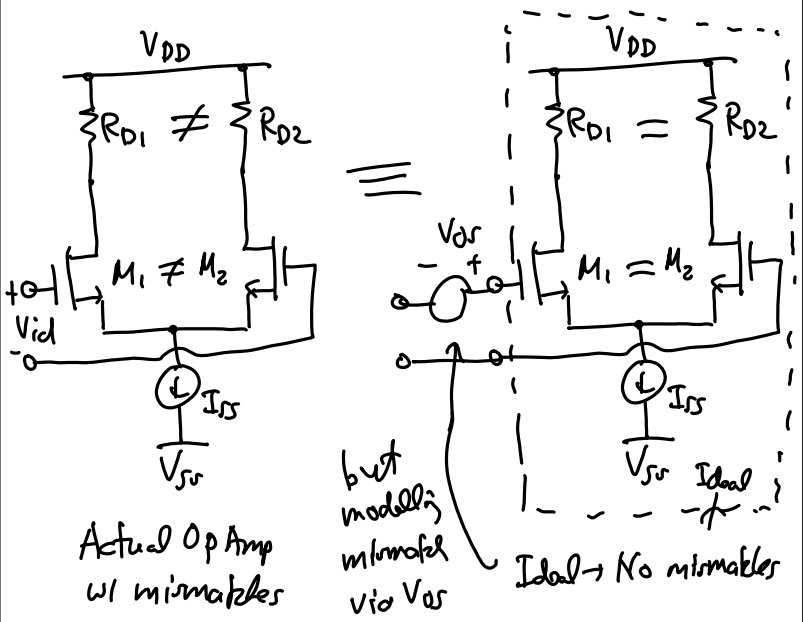 V_DD
R_D1 ≠ R_D2
M_1 ≠ M_2
+
Vid
-
I_SS
V_SS
Actual Op Amp
w/ mismatches
≡
V_DD
R_D1 = R_D2
V_OS
- +
M_1 = M_2
I_SS
V_SS
Ideal
but
modelling
mismatch
via V_OS
Ideal → No mismatches